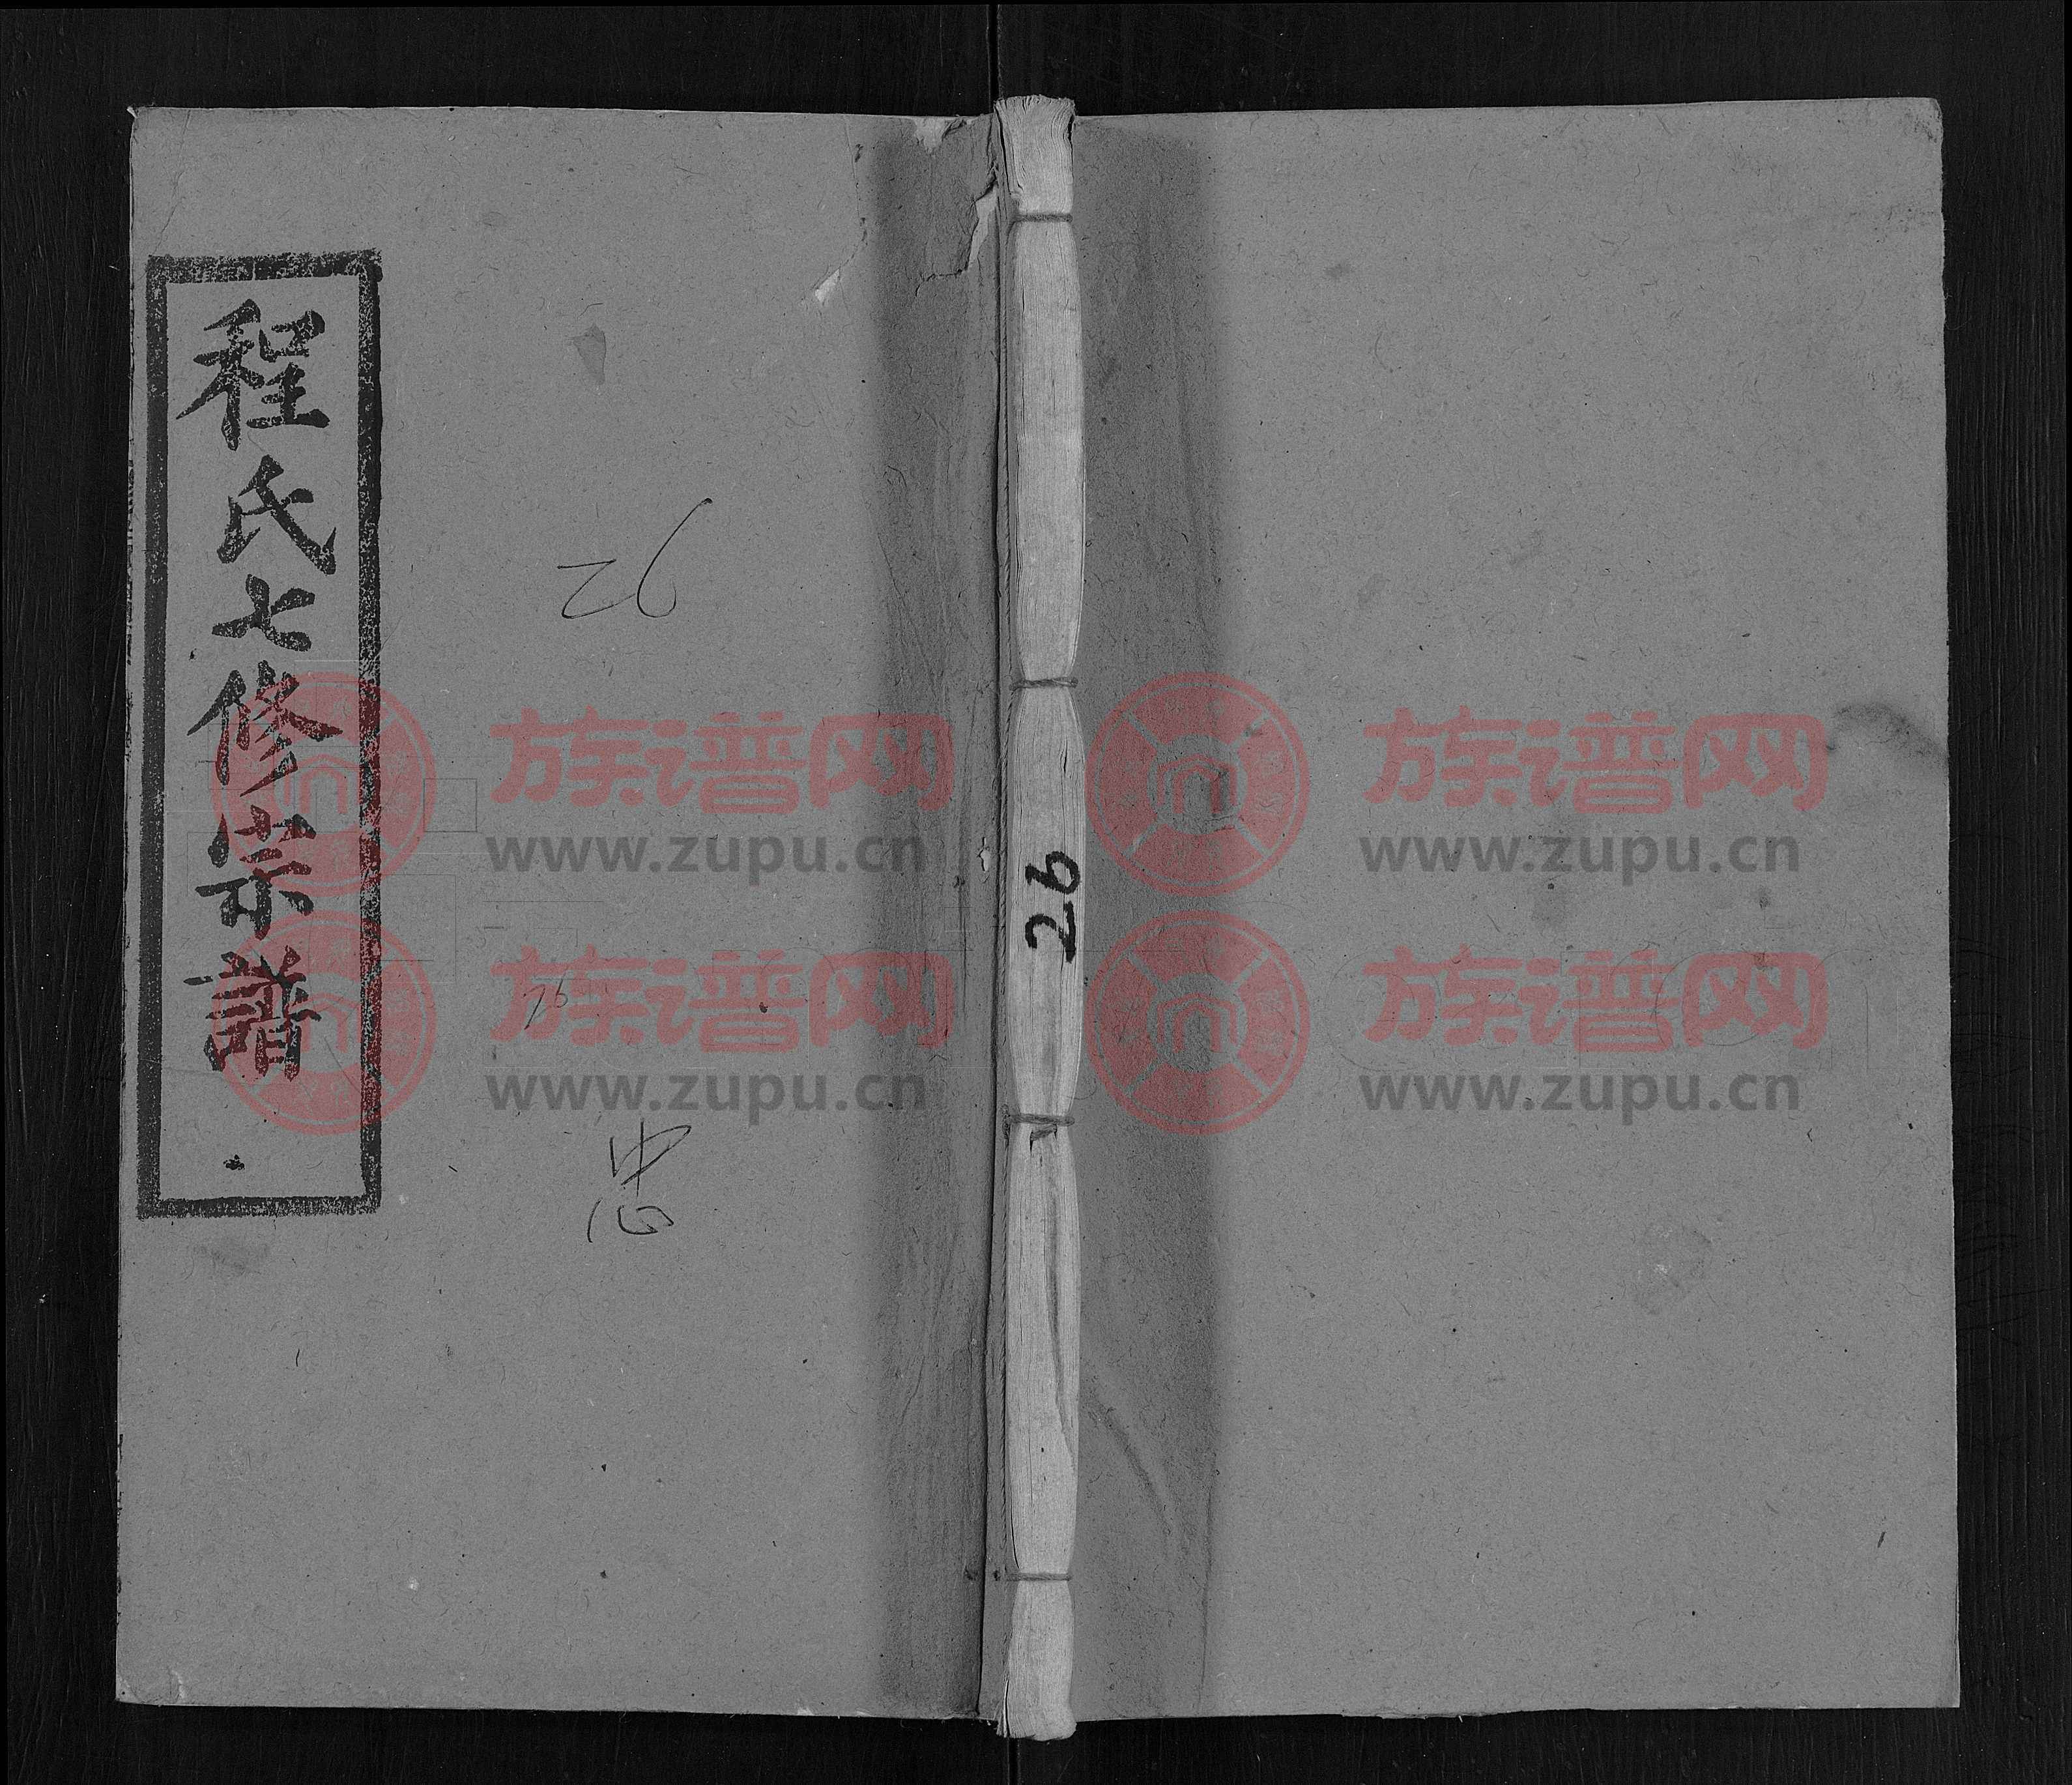 程氏七修宗譜
26
26
26
族谱网
www.zupu.cn
族谱网
www.zupu.cn
族谱网
www.zupu.cn
族谱网
www.zupu.cn